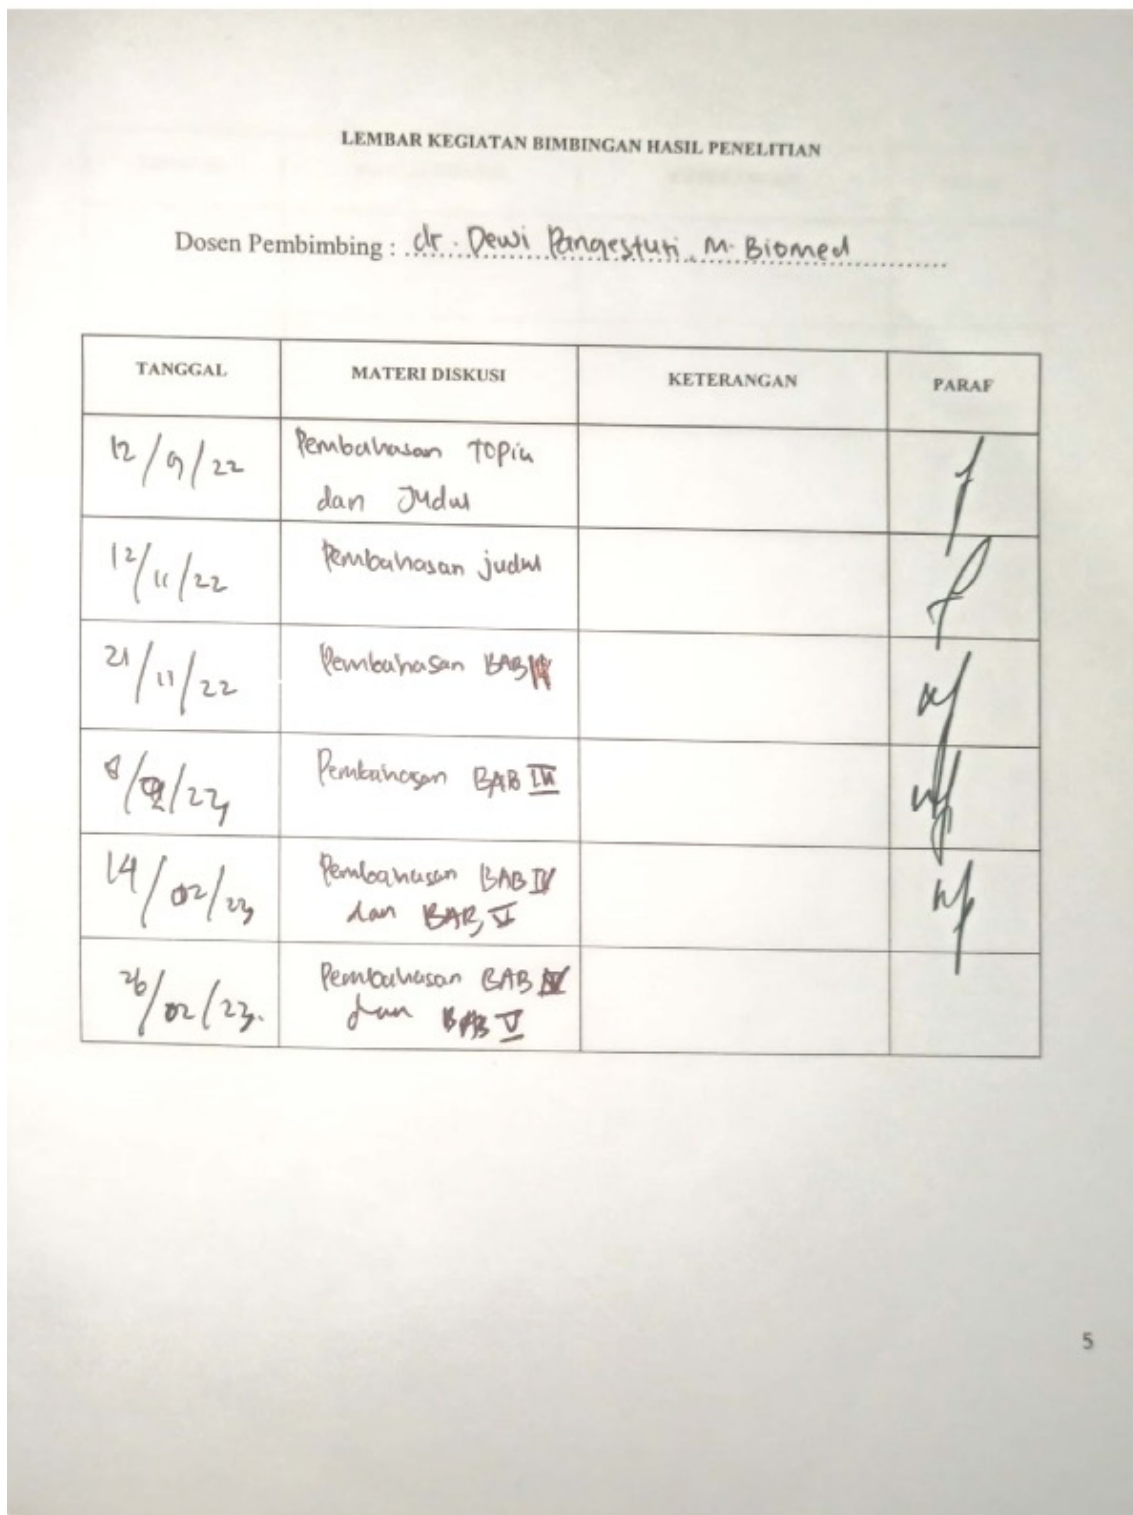 LEMBAR KEGIATAN BIMBINGAN HASIL PENELITIAN
Dosen Pembimbing : dr. Dewi Pangestuti, M. Biomed
TANGGAL MATERI DISKUSI KETERANGAN PARAF
12/9/22 Pembahasan Topik
dan Judul
12/11/22 Pembahasan judul
21/11/22 Pembahasan BAB
8/2/23 Pembahasan BAB III
14/02/23 Pembahasan BAB IV
dan BAB V
26/02/23. Pembahasan BAB IV
dan BAB V
5